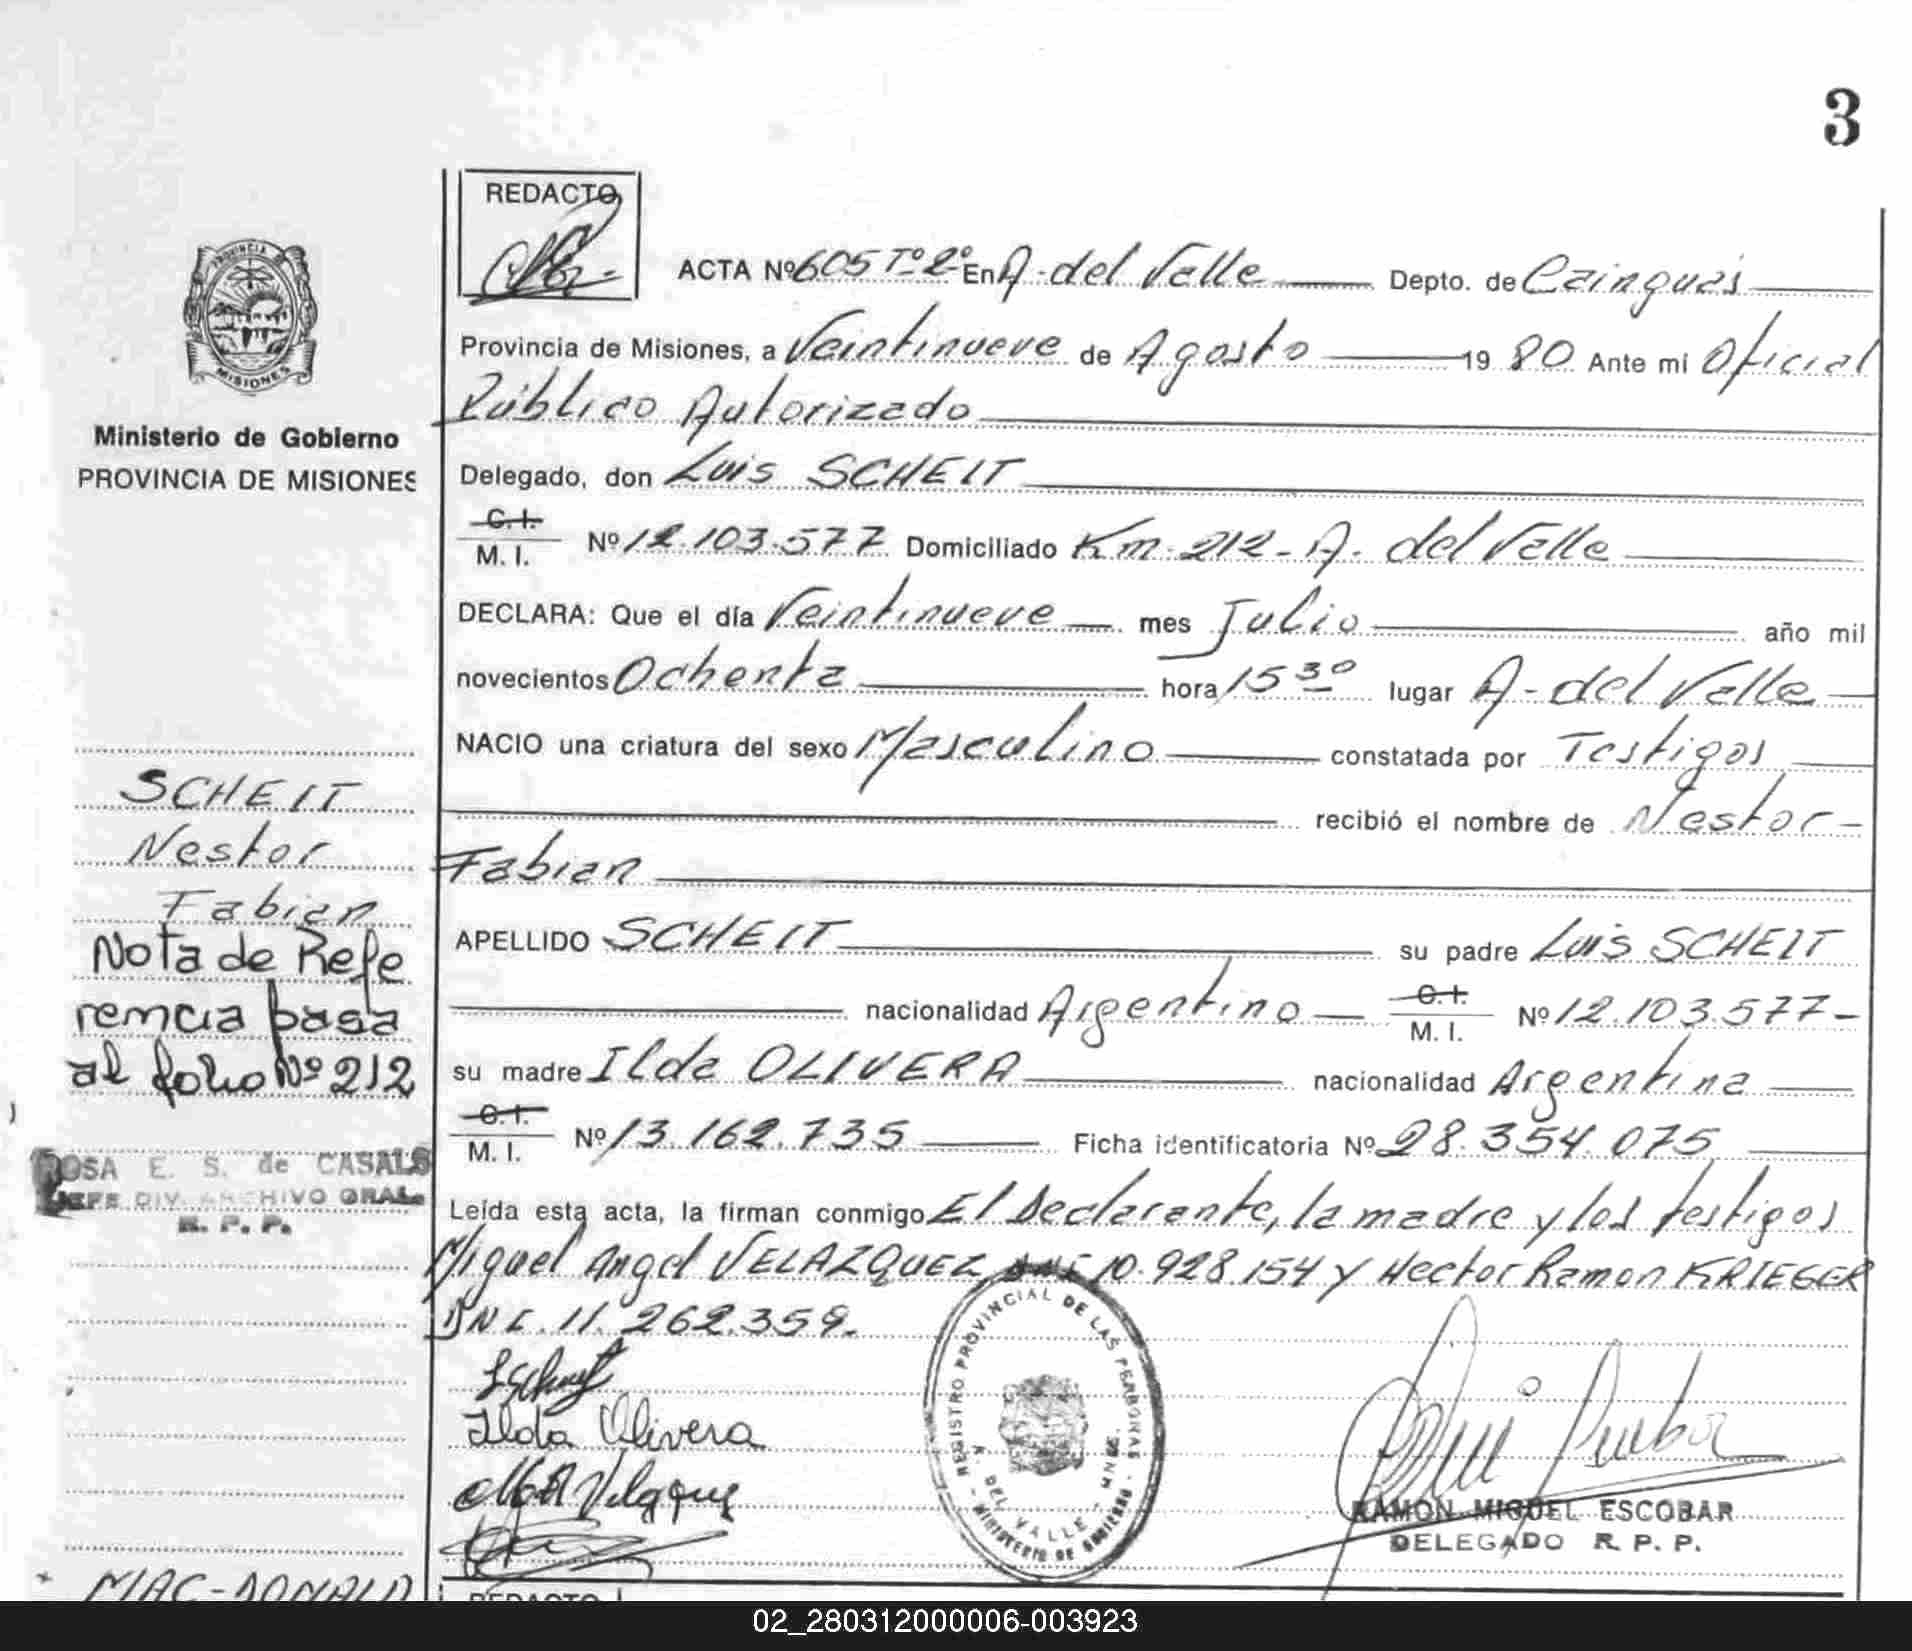 3
REDACTO
ACTA Nº 605 Tº 2º En A. del Valle Depto. de Cainguás
Provincia de Misiones, a Veintinueve de Agosto 19 80 Ante mi Oficial
Público Autorizado
Delegado, don Luis SCHEIT
C. I.
M. I. Nº 12.103.577 Domiciliado Km 212 - A. del Valle
DECLARA: Que el día Veintinueve mes Julio año mil
novecientos Ochenta hora 15 30 lugar A. del Valle
NACIO una criatura del sexo Masculino constatada por Testigos
recibió el nombre de Nestor
Fabian
APELLIDO SCHEIT su padre Luis SCHEIT
nacionalidad Argentino C. I. M. I. Nº 12.103.577
su madre Ilda OLIVERA nacionalidad Argentina
C. I.
M. I. Nº 13.162.735 Ficha identificatoria Nº 28.354.075
Leída esta acta, la firman conmigo El Declarante, la madre y los testigos
Miguel Angel VELAZQUEZ 10.928.154 y Hector Ramon KRIEGER
DNI. 11.262.359.
Ilda Olivera
REGISTRO PROVINCIAL DE LAS PERSONAS
A. DEL VALLE - MNES.
MINISTERIO DE GOBIERNO
RAMON MIGUEL ESCOBAR
DELEGADO R. P. P.
REDACTO
PROVINCIA DE
MISIONES
Ministerio de Gobierno
PROVINCIA DE MISIONES
SCHEIT
Nestor
Fabian
Nota de Refe
rencia pasa
al folio Nº 212
ROSA E. S. de CASALS
JEFE DIV. ARCHIVO GRAL.
R. P. P.
MAC-DONALD
02_280312000006-003923